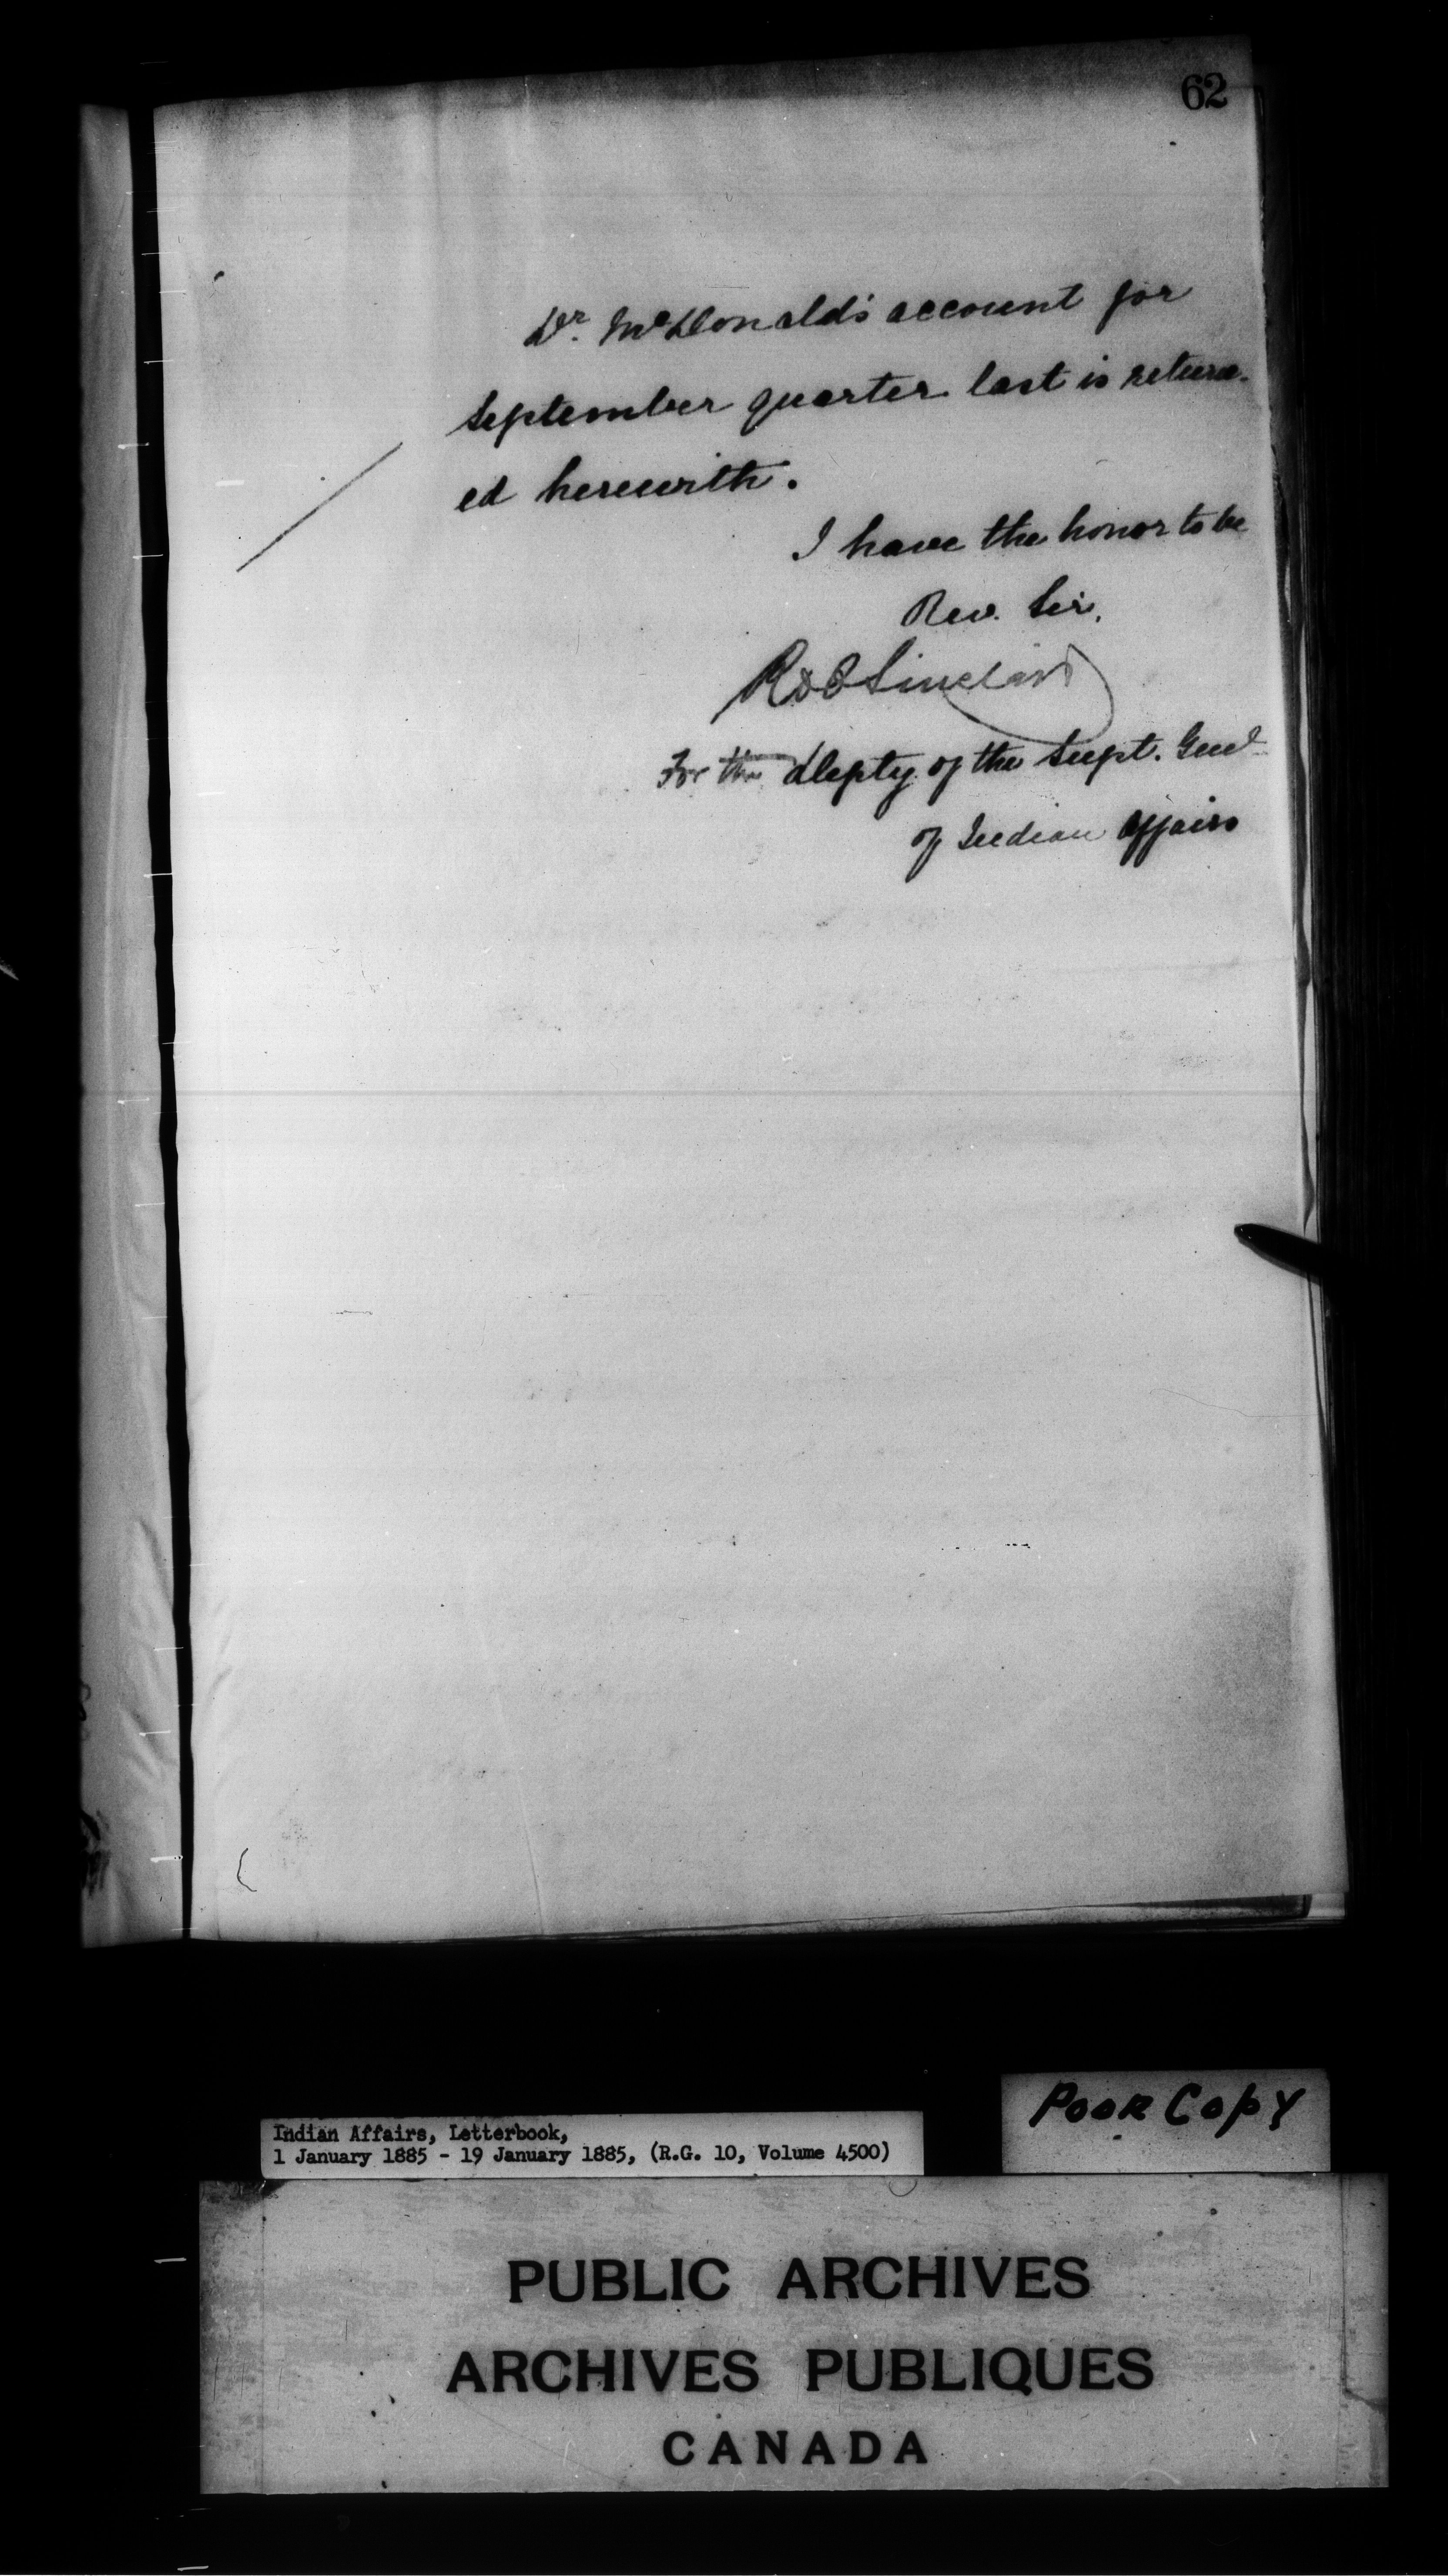 62
Dr. McDonald's account for
September quarter last is return-
ed herewith.
I have the honor to be
Rev. Sir,
Sinclair
For the Depty of the Supt. Genl
of Indian Affairs
Poor Copy
Indian Affairs, Letterbook,
1 January 1885 - 19 January 1885, (R.G. 10, Volume 4500)
PUBLIC ARCHIVES
ARCHIVES PUBLIQUES
CANADA